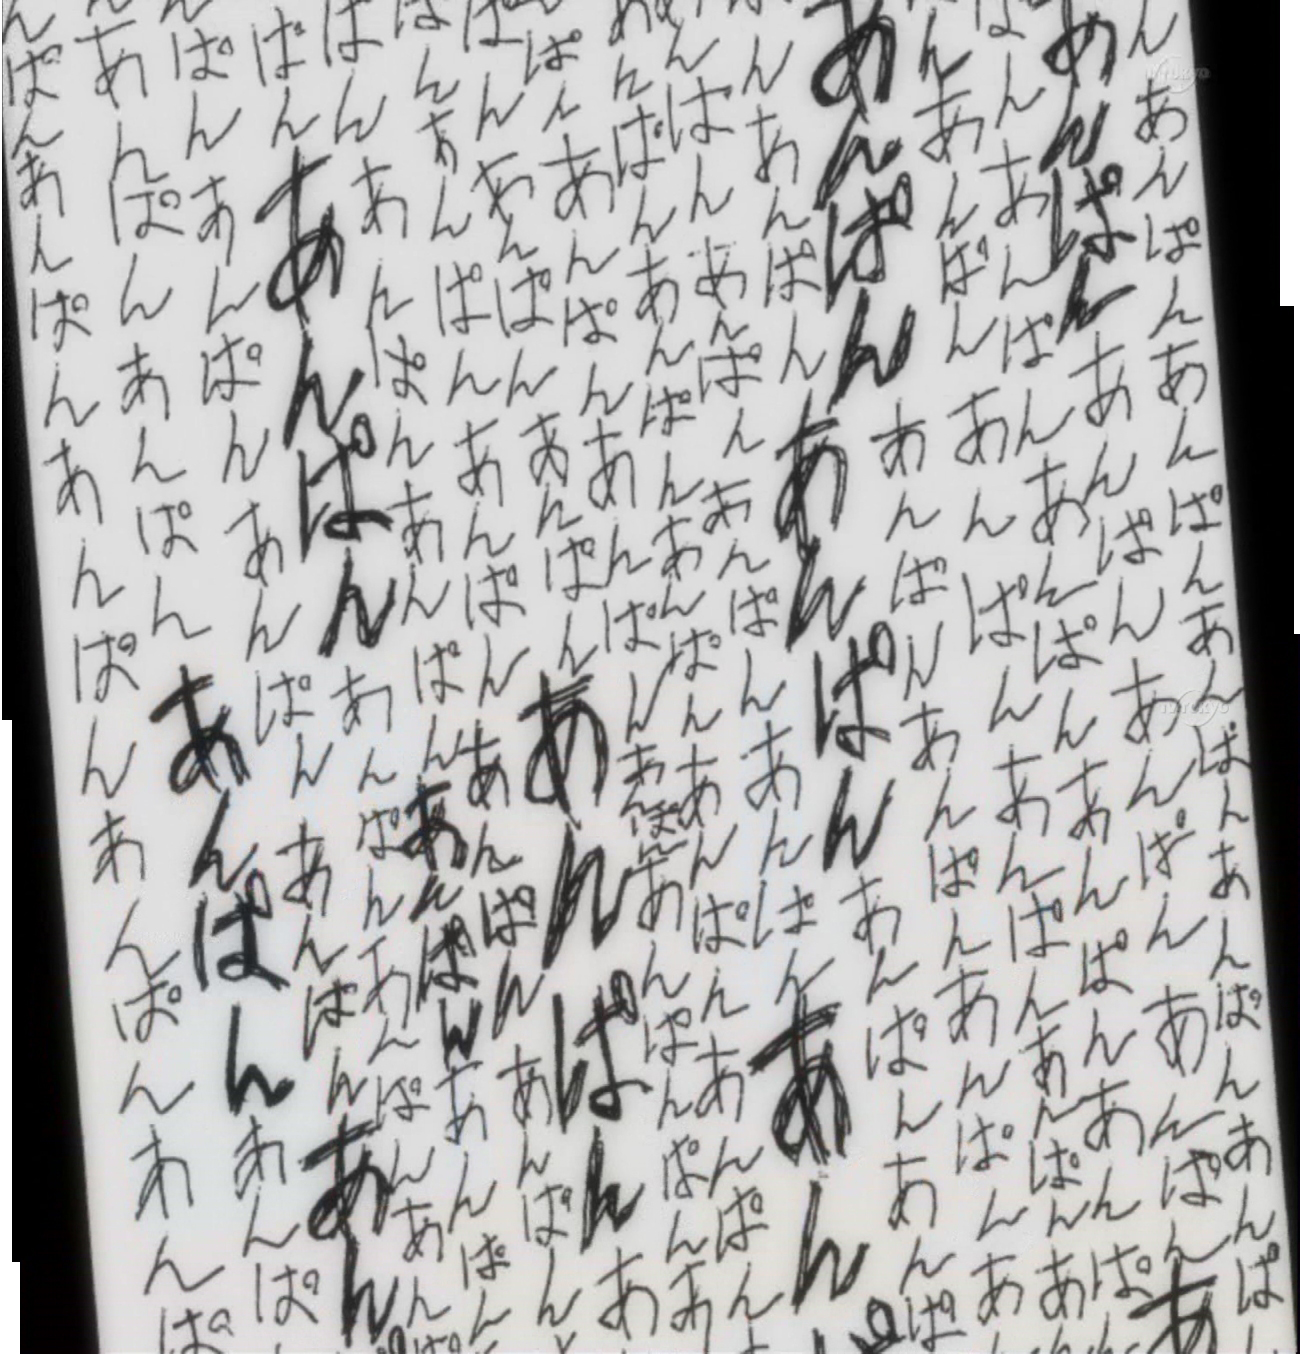 んあんぱんあんぱんあんぱんあんぱんあんぱ
あんぱんあんぱんあんぱんあんぱんあ
ぱんあんぱんあんぱんあんぱんあんぱ
んあんぱんあんぱんあんぱんあんぱんあ
あんぱんあんぱんあんぱんあんぱんあ
んあんぱんあんぱんあんぱんあんぱ
んぱんあんぱんあんぱんあんぱんあん
あんぱんあんぱんあんぱんあんぱんあんぱん
ぱんあんぱんあんぱんあんぱんあんぱんぱんあ
ぱんあんぱんあんぱんあんぱんあ
ぱんあんぱんあんぱんあんぱんあんぱん
ぱんあんぱんあんぱんあんぱんあんぱん
ぱんあんぱんあんぱんあんぱんあんぱ
ぱんあんぱんあんぱんあんぱんあん
あんぱんあんぱんあんぱんあんぱ
んぱんあんぱんあんぱんあんぱんあんぱ